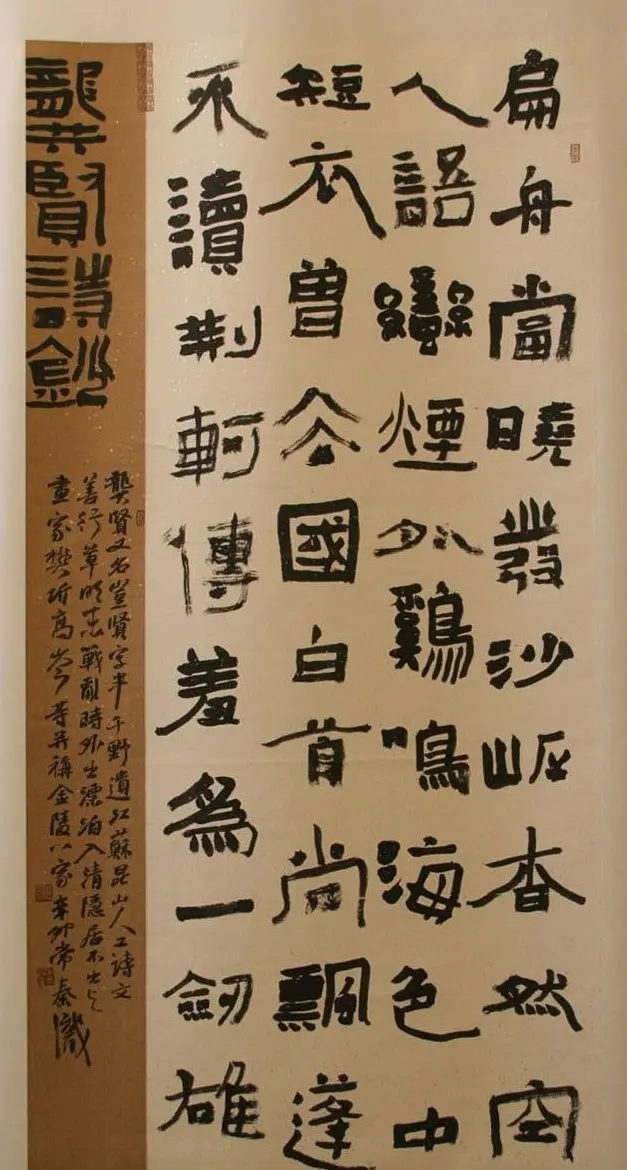 扁舟當曉發沙岸杳然空
人語蠻煙外鷄鳴海色中
短衣曾去國白首尚飄蓬
不讀荆軻傳羞爲一劒雄
龔賢詩鈔
龔賢又名豈賢字半千野遺江蘇昆山人工詩文
善行草明末戰亂時外出漂泊入清隱居不出與
畫家樊圻高岑等并稱金陵八家辛卯常秦識